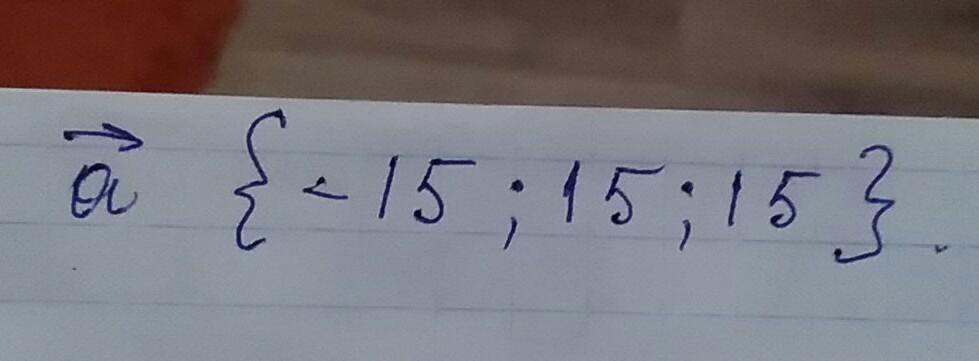 a⃗ {-15;15;15}.